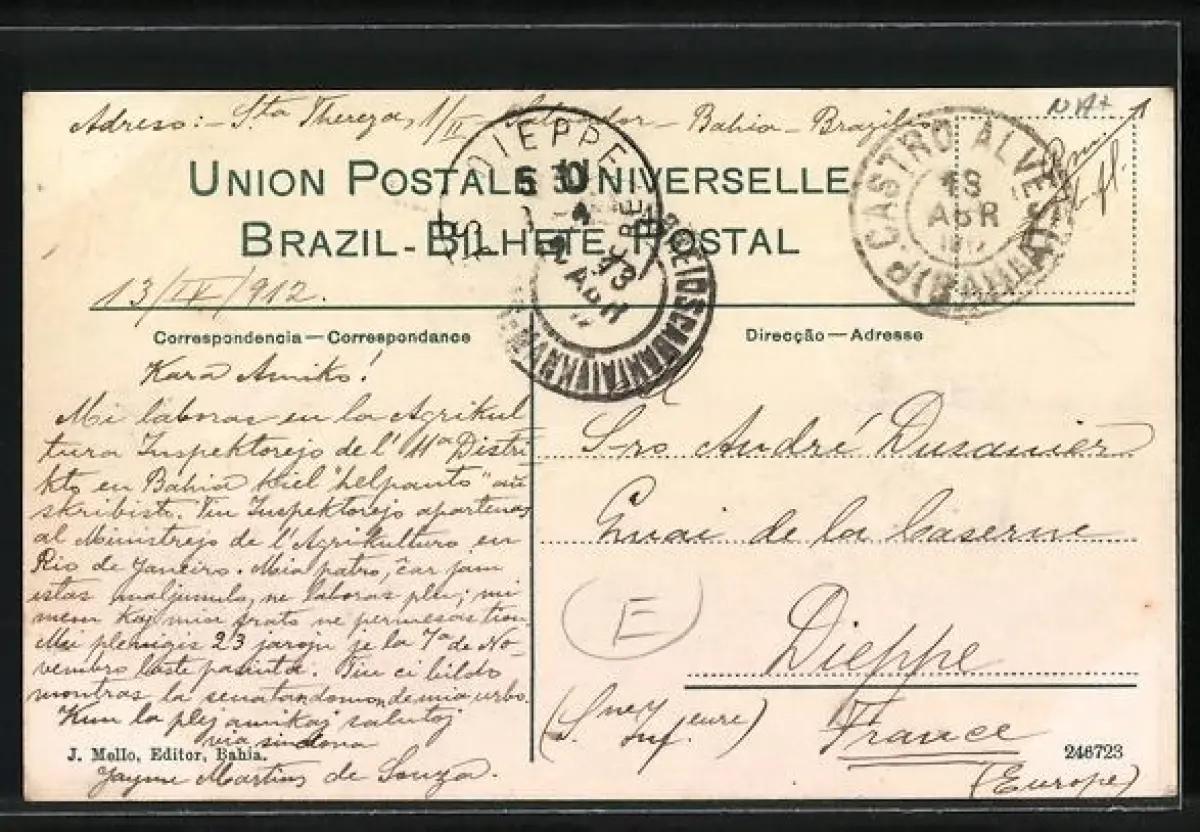 Adreso:- Sta Thereza, 1/II - Salvador - Bahia - Brazilio
UNION POSTALE UNIVERSELLE
BRAZIL-BILHETE POSTAL
DIEPPE
CASTRO ALVES
13
ABR
BAHIA
13/IV/912.
Correspondencia — Correspondance
Direcção — Adresse
Kara Amiko!
Mi laboras en la Agrikul
tura Inspektorejo de l' 11ª Distri
kto en Bahia kiel "helpanto" aŭ
skribisto. Tiu Inspektorejo apartenas
al Ministrejo de l'Agrikulturo en
Rio de Janeiro. Mia patro, ĉar jam
estas maljunulo, ne laboras plu; mi
mem kaj mia frato ne permesas tion.
Mi plenigis 23 jarojn je la 7ª de No-
vembro laste pasinta. Tiu ci bildo
montras la senatandomon de mia urbo.
Kun la plej amikaj salutoj
via sindona
Jayme Martins de Souza.
J. Mello, Editor, Bahia.
Al
S-ro André Dusanier
Quai de la Caserne
Dieppe
E
(Sney Inf.eure)
France
(Europe)
246723